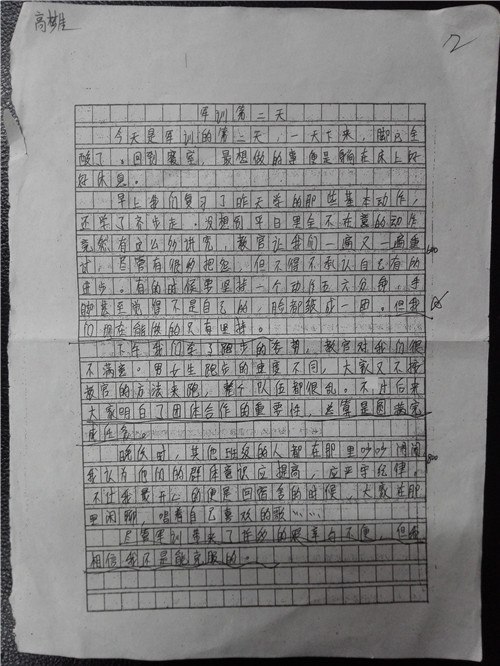 高梦生
12
军训第二天
今天是军训的第二天，一天下来，脚已全
酸了。回到寝室，最想做的事便是躺在床上好
好休息。
早上我们复习了昨天学的那些基本动作，
还学了齐步走。没想到平日里全不在意的动作
竟然有这么多讲究，教官让我们一遍又一遍
试，尽管有很多抱怨，但不得不承认自己有所
进步。有的时候要坚持一个动作五六分钟，手
脚甚至觉得不是自己的，脸都皱成一团。但我
们现在能做的只有坚持。
下午我们车了跑步的考验，教官对我们很
不满意。男女生跑步的速度不同，大家又不按
教官的方法来跑，整个队伍都很乱。不过后来
大家明白了团体合作的重要性，总算是圆满完
成任务。
晚饭时，其他班级的人都在那里吵吵闹闹
我认为他们的群体意识应提高，应严守纪律。
不过我最开心的便是回宿舍的时候，大家在那
里闲聊，唱着自己喜欢的歌……
尽管军训带来了许多的艰辛与不便，但我
相信我还是能克服的。